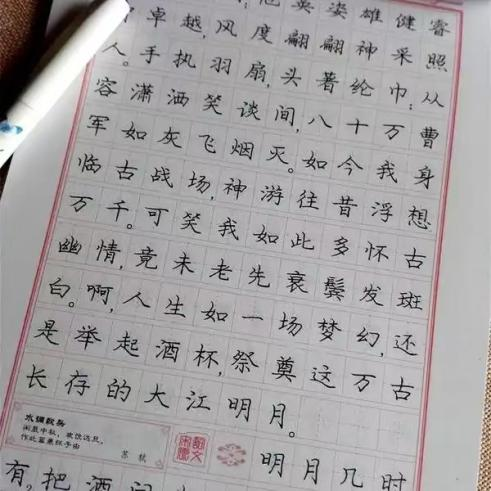 他英姿雄健睿
卓越,风度翩翩神采照
人。手执羽扇,头著纶巾;从
容潇洒笑谈间,八十万曹
军如灰飞烟灭。如今我身
临古战场,神游往昔浮想
万千。可笑我如此多怀古
幽情,竟未老先衰鬓发斑
白。啊,人生如一场梦幻,还
是举起酒杯,祭奠这万古
长存的大江明月。
水调歌头
丙辰中秋,欢饮达旦,
作此篇兼怀子由
苏轼
明月几时
有,把酒问